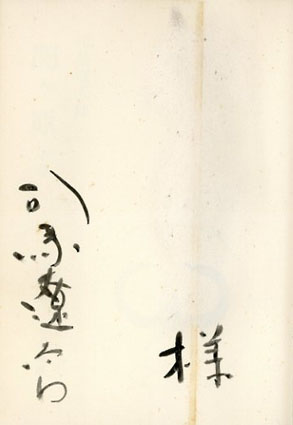 様
司馬遼太郎